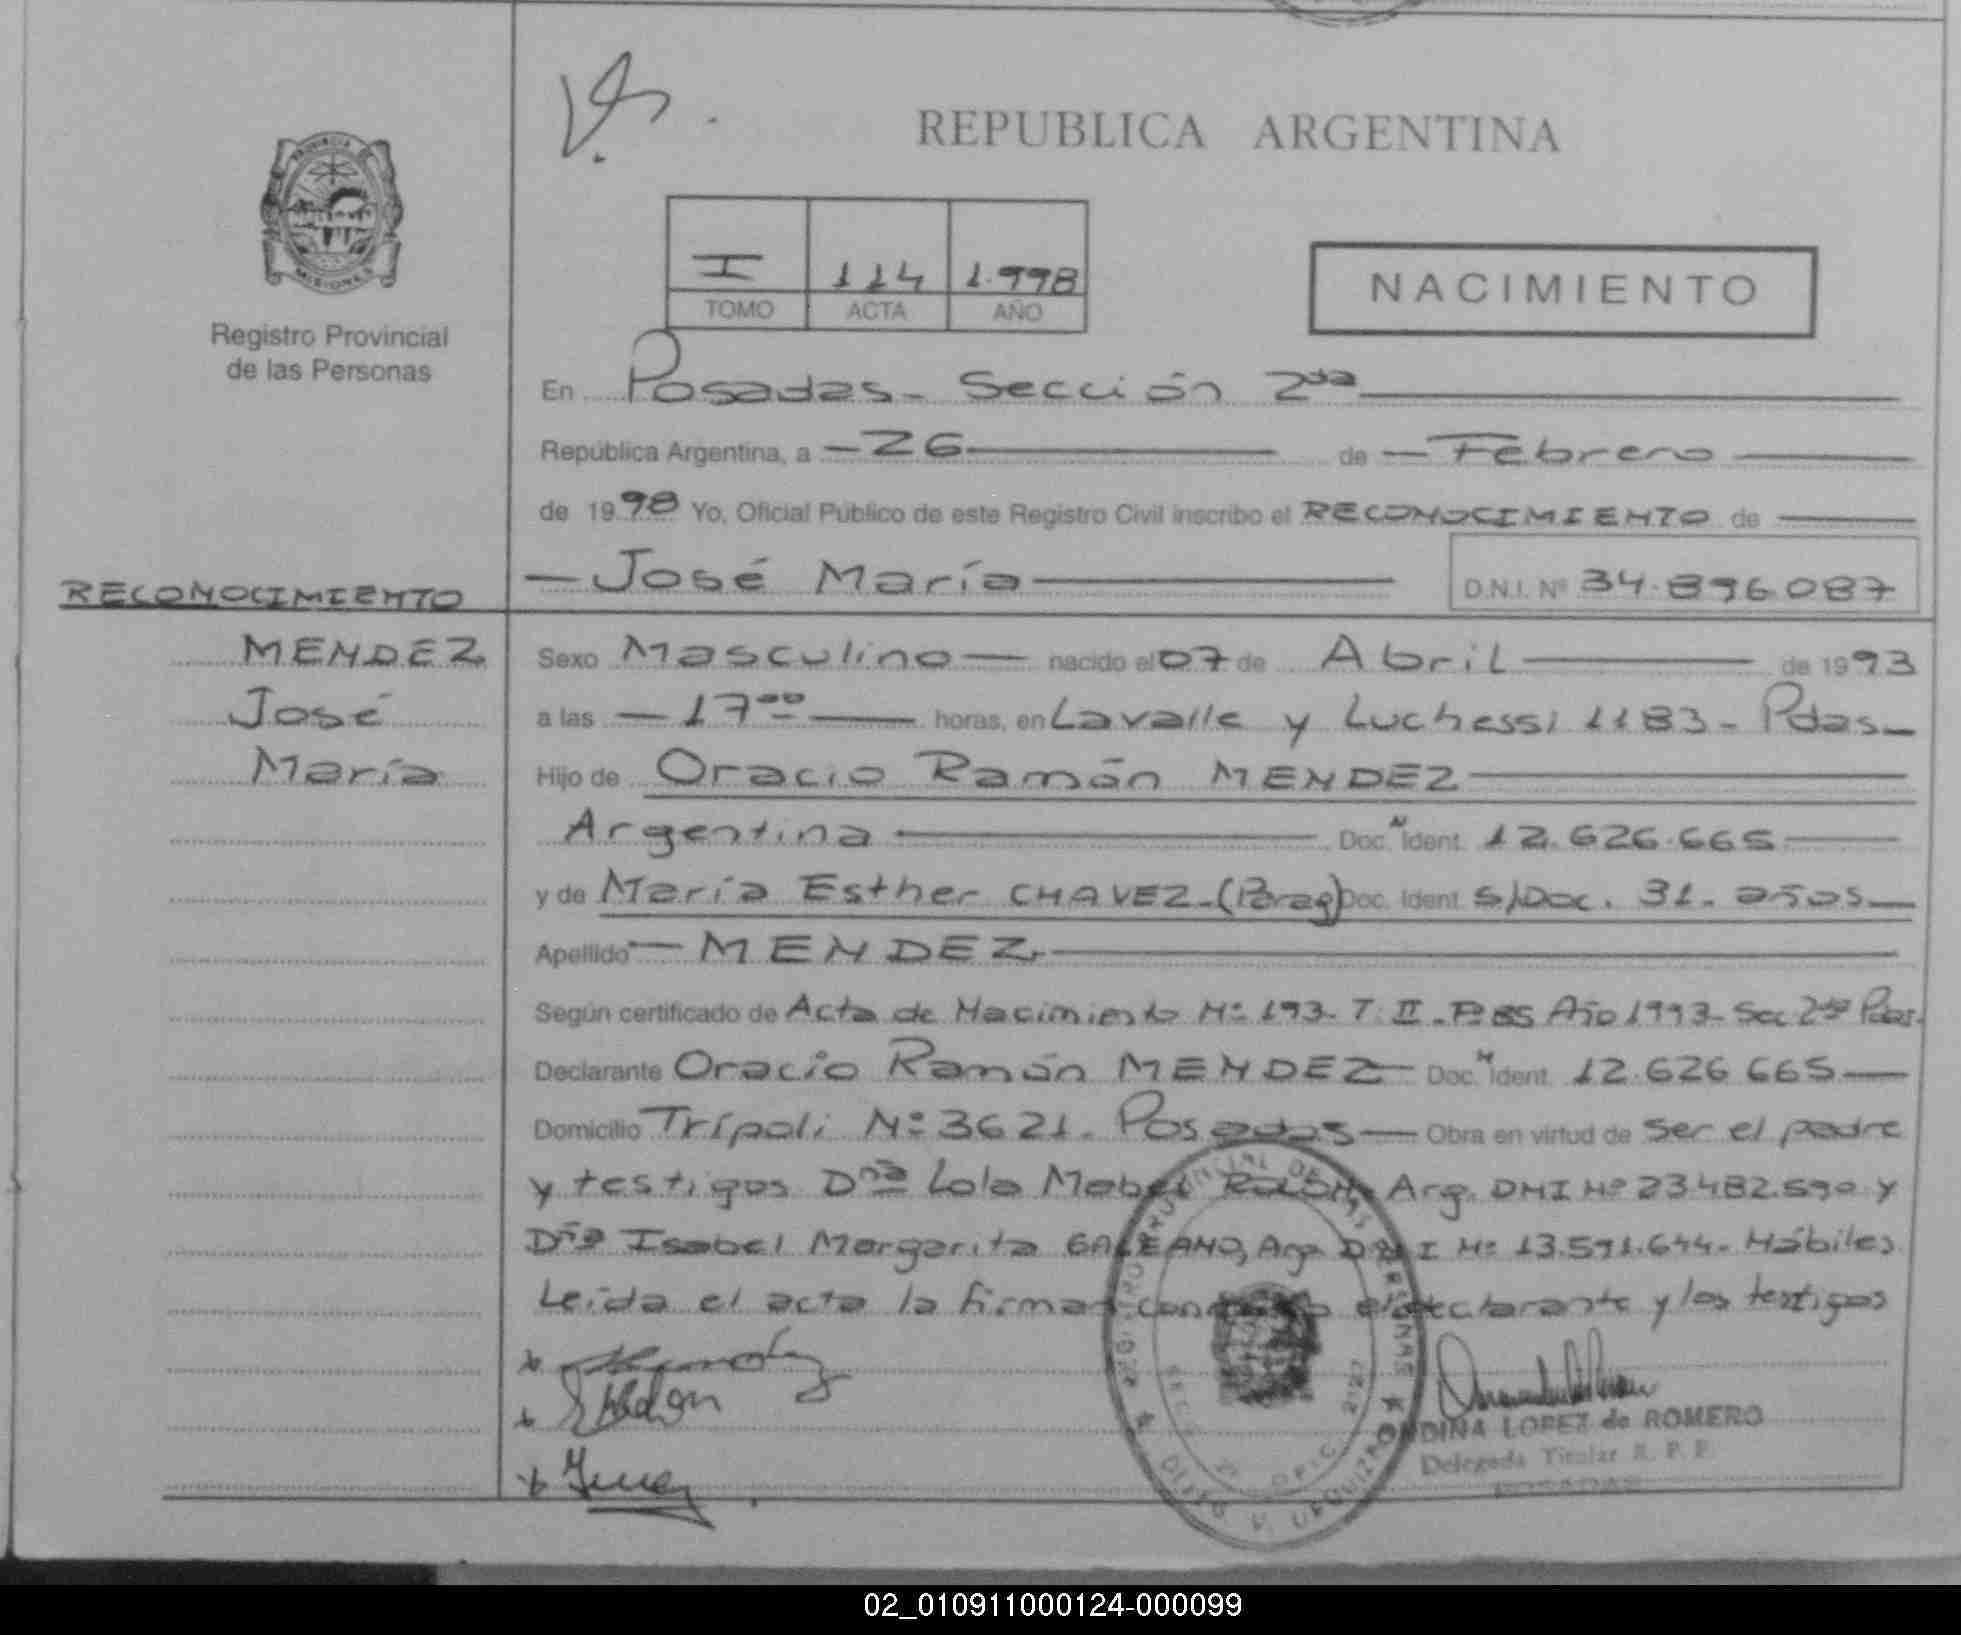 REPUBLICA ARGENTINA
PROVINCIA DE MISIONES
Registro Provincial
de las Personas
I 114 1.998
TOMO ACTA AÑO
NACIMIENTO
En Posadas - Sección 2da
República Argentina, a - 26 de - Febrero
de 1998 Yo, Oficial Público de este Registro Civil inscribo el RECONOCIMIENTO de
- José María D.N.I. Nº 34.896.087
RECONOCIMIENTO
MENDEZ
José
María
Sexo Masculino - nacido el 07 de Abril de 1993
a las - 17ºº horas, en Lavalle y Luchessi 1183 - Pdas -
Hijo de Oracio Ramón MENDEZ
Argentina Doc. N Ident. 12.626.665
y de María Esther CHAVEZ - (Parag) Doc. Ident. S/Doc. 31 - años -
Apellido - MENDEZ
Según certificado de Acta de Nacimiento Nº 193 - T. II - Año 1993 - Sec 2da Pdas.
Declarante Oracio Ramón MENDEZ - Doc. N Ident. 12.626.665
Domicilio Trípoli Nº 3621 - Posadas - Obra en virtud de ser el padre
y testigos Dña Lola Mabel Arg. DNI Nº 23.482.590 y
Dña Isabel Margarita GALEANO, Arg. DNI Nº 13.591.644 - Hábiles
Leída el acta la firman el declarante y los testigos
ONDINA LOPEZ de ROMERO
Delegada Titular R. P. P.
POSADAS
REGISTRO PROVINCIAL DE LAS PERSONAS
02_010911000124-000099